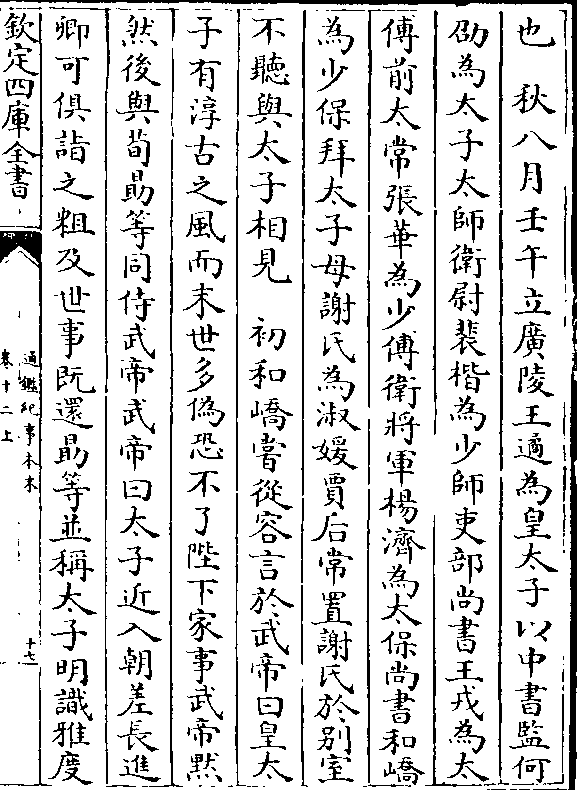 也　秋八月壬午立廣陵王遹為皇太子以中書監何
劭為太子太師衛尉裴楷為少師吏部尚書王戎為太
傅前太常張華為少傅衛將軍楊濟為太保尚書和嶠
為少保拜太子母謝氏為淑媛賈后常置謝氏於别室
不聽與太子相見　初和嶠嘗從容言於武帝曰皇太
子有淳古之風而末世多偽恐不了陛下家事武帝黙
然後與荀勗等同侍武帝武帝曰太子近入朝差長進
卿可俱詣之粗及世事既還勗等並稱太子明識雅度
欽定四庫全書
通鑑紀事本末
卷十二上
十七